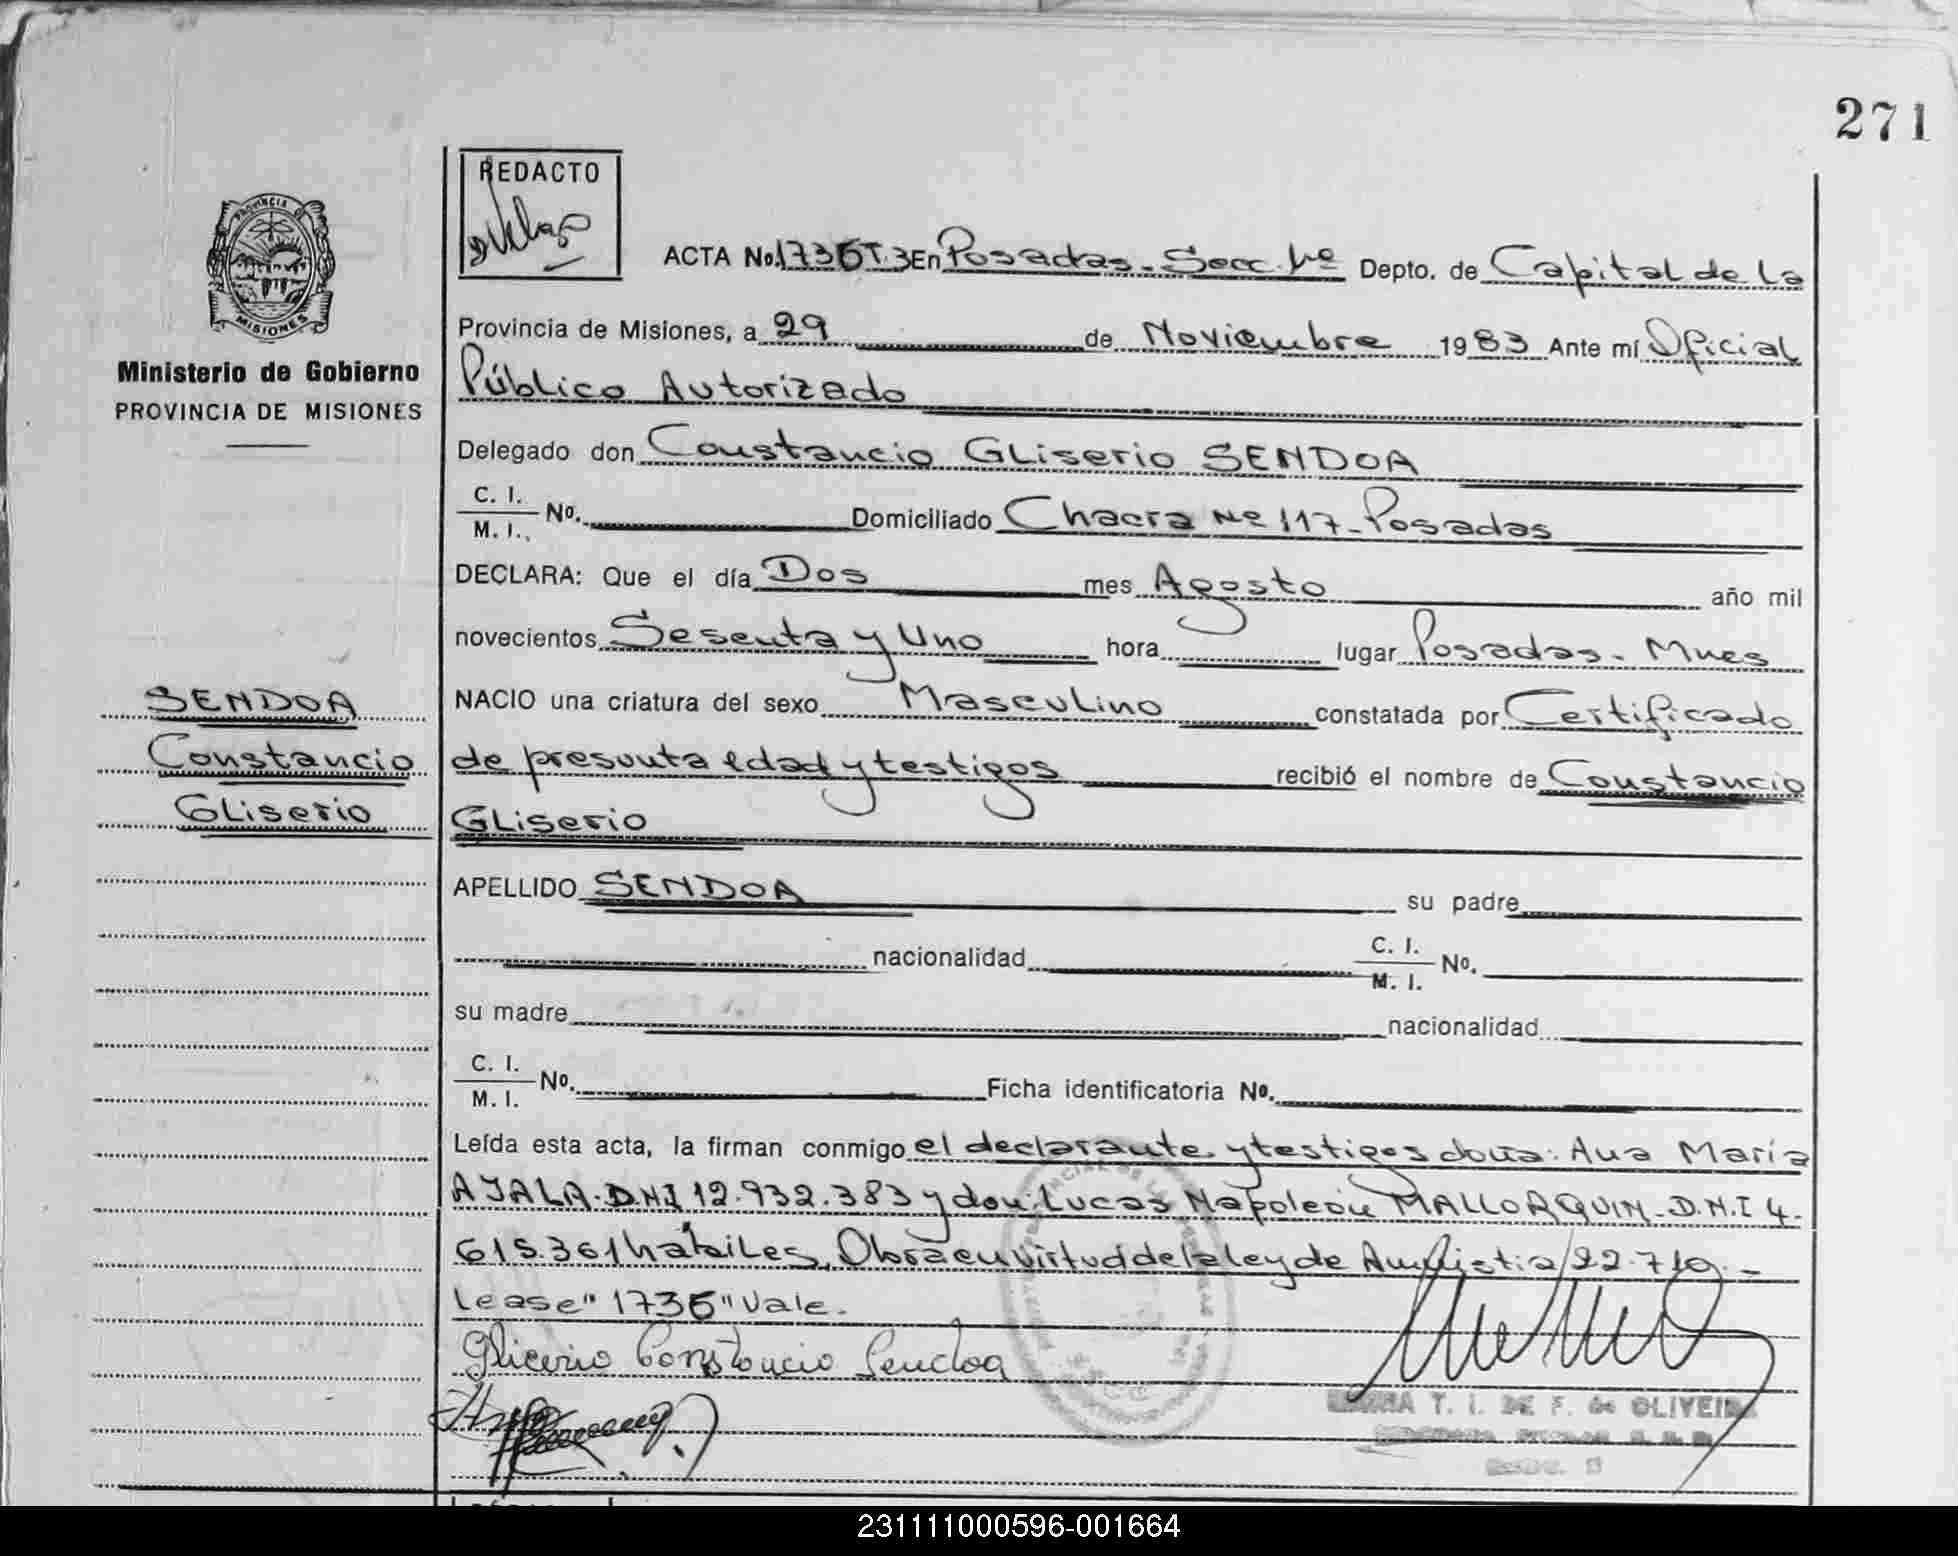 271
REDACTO
PROVINCIA DE
MISIONES
ACTA No. 1735 T. 3 En Posadas - Secc. 1º Depto. de Capital de la
Provincia de Misiones, a 29 de Noviembre 1983 Ante mí Oficial
Público Autorizado
Ministerio de Gobierno
PROVINCIA DE MISIONES
Delegado don Constancio Gliserio SENDOA
C. I.
M. I. No. Domiciliado Chacra Nº 117 - Posadas
DECLARA: Que el día Dos mes Agosto año mil
novecientos Sesenta y Uno hora lugar Posadas - Mnes
NACIO una criatura del sexo Masculino constatada por Certificado
de presunta edad y testigos recibió el nombre de Constancio
Gliserio
SENDOA
Constancio
Gliserio
APELLIDO SENDOA su padre
nacionalidad C. I. M. I. No.
su madre nacionalidad
C. I. M. I. No. Ficha identificatoria No.
Leída esta acta, la firman conmigo el declarante y testigos doña: Ana María
AYALA. D.N.I 12.932.383 y don: Lucas Napoleón MALLORQUIN - D.N.I 4.
615.361 hábiles, Obra en virtud de la ley de Amnistia/22.710. -
Lease "1735" Vale.
Glicerio Constancio Sendoa
T. I. DE F. de OLIVEIRA
231111000596-001664